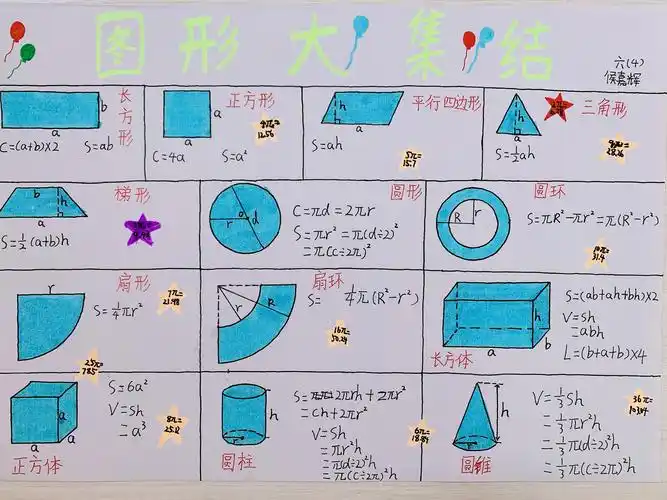 图形大集结
六(4)
侯嘉辉
长方形
b
a
C=(a+b)×2 S=ab
正方形
a
a
4π=
12.56
C=4a S=a²
平行四边形
h
a
S=ah
5π=
15.7
三角形
h
a
S=½ah
9π=
28.26
梯形
b
h
a
S=½(a+b)h
圆形
r
o
d
C=πd=2πr
S=πr²=π(d÷2)²
=π(C÷2π)²
圆环
R
r
S=πR²-πr²=π(R²-r²)
10π=
31.4
扇形
r
S=¼πr²
7π=
21.98
25π=
78.5
扇环
r
R
S= ¼π(R²-r²)
16π=
50.24
长方体
h
b
a
S=(ab+ah+bh)×2
V=sh
=abh
L=(b+a+b)×4
正方体
a
a
a
S=6a²
V=sh
=a³
8π=
25.12
圆柱
h
r
S=2πrh+2πr²
=Ch+2πr²
V=Sh
=πr²h
=π(d÷2)²h
=π(C÷2π)²h
6π=
18.84
圆锥
h
r
V=⅓Sh
=⅓πr²h
=⅓π(d÷2)²h
=⅓π(C÷2π)²h
36π=